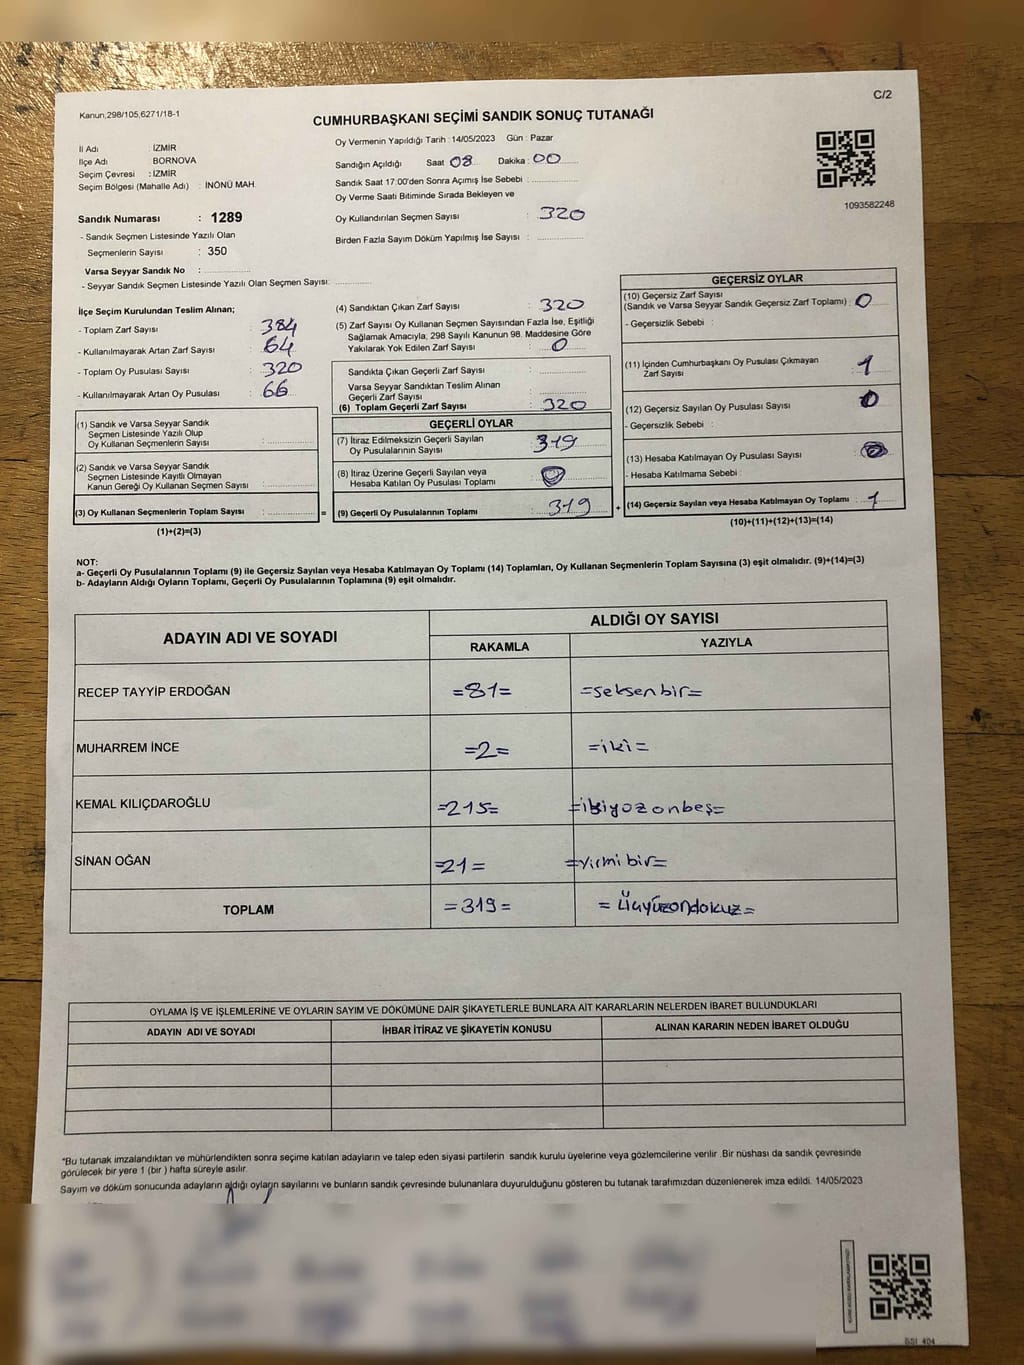 C/2
Kanun,298/105,6271/18-1
CUMHURBAŞKANI SEÇİMİ SANDIK SONUÇ TUTANAĞI
Oy Vermenin Yapıldığı Tarih : 14/05/2023 Gün : Pazar
İl Adı : İZMİR
İlçe Adı : BORNOVA
Seçim Çevresi : İZMİR
Seçim Bölgesi (Mahalle Adı) : İNÖNÜ MAH.
Sandığın Açıldığı Saat 08 Dakika : 00
Sandık Saat 17:00'den Sonra Açımış İse Sebebi :
Oy Verme Saati Bitiminde Sırada Bekleyen ve
Oy Kullandırılan Seçmen Sayısı : 320
Birden Fazla Sayım Döküm Yapılmış İse Sayısı :
1093582248
Sandık Numarası : 1289
- Sandık Seçmen Listesinde Yazılı Olan
Seçmenlerin Sayısı : 350
Varsa Seyyar Sandık No :
- Seyyar Sandık Seçmen Listesinde Yazılı Olan Seçmen Sayısı:
İlçe Seçim Kurulundan Teslim Alınan;
- Toplam Zarf Sayısı : 384
- Kullanılmayarak Artan Zarf Sayısı : 64
- Toplam Oy Pusulası Sayısı : 320
- Kullanılmayarak Artan Oy Pusulası : 66
(1) Sandık ve Varsa Seyyar Sandık
Seçmen Listesinde Yazılı Olup
Oy Kullanan Seçmenlerin Sayısı :
(2) Sandık ve Varsa Seyyar Sandık
Seçmen Listesinde Kayıtlı Olmayan
Kanun Gereği Oy Kullanan Seçmen Sayısı :
(3) Oy Kullanan Seçmenlerin Toplam Sayısı : =
(1)+(2)=(3)
(4) Sandıktan Çıkan Zarf Sayısı : 320
(5) Zarf Sayısı Oy Kullanan Seçmen Sayısından Fazla İse, Eşitliği
Sağlamak Amacıyla, 298 Sayılı Kanunun 98. Maddesine Göre
Yakılarak Yok Edilen Zarf Sayısı : 0
Sandıkta Çıkan Geçerli Zarf Sayısı :
Varsa Seyyar Sandıktan Teslim Alınan
Geçerli Zarf Sayısı :
(6) Toplam Geçerli Zarf Sayısı : 320
GEÇERLİ OYLAR
(7) İtiraz Edilmeksizin Geçerli Sayılan
Oy Pusulalarının Sayısı : 319
(8) İtiraz Üzerine Geçerli Sayılan veya
Hesaba Katılan Oy Pusulası Toplamı :
(9) Geçerli Oy Pusulalarının Toplamı : 319 +
GEÇERSİZ OYLAR
(10) Geçersiz Zarf Sayısı
(Sandık ve Varsa Seyyar Sandık Geçersiz Zarf Toplamı) : 0
- Geçersizlik Sebebi :
(11) İçinden Cumhurbaşkanı Oy Pusulası Çıkmayan
Zarf Sayısı : 1
(12) Geçersiz Sayılan Oy Pusulası Sayısı : 0
- Geçersizlik Sebebi :
(13) Hesaba Katılmayan Oy Pusulası Sayısı :
- Hesaba Katılmama Sebebi :
(14) Geçersiz Sayılan veya Hesaba Katılmayan Oy Toplamı : 1
(10)+(11)+(12)+(13)=(14)
NOT:
a- Geçerli Oy Pusulalarının Toplamı (9) ile Geçersiz Sayılan veya Hesaba Katılmayan Oy Toplamı (14) Toplamları, Oy Kullanan Seçmenlerin Toplam Sayısına (3) eşit olmalıdır. (9)+(14)=(3)
b- Adayların Aldığı Oyların Toplamı, Geçerli Oy Pusulalarının Toplamına (9) eşit olmalıdır.
ADAYIN ADI VE SOYADI
ALDIĞI OY SAYISI
RAKAMLA YAZIYLA
RECEP TAYYİP ERDOĞAN =81= =seksenbir=
MUHARREM İNCE =2= =iki=
KEMAL KILIÇDAROĞLU =215= =ikiyüzonbeş=
SİNAN OĞAN =21= =yirmibir=
TOPLAM =319= =üçyüzondokuz=
OYLAMA İŞ VE İŞLEMLERİNE VE OYLARIN SAYIM VE DÖKÜMÜNE DAİR ŞİKAYETLERLE BUNLARA AİT KARARLARIN NELERDEN İBARET BULUNDUKLARI
ADAYIN ADI VE SOYADI İHBAR İTİRAZ VE ŞİKAYETİN KONUSU ALINAN KARARIN NEDEN İBARET OLDUĞU
*Bu tutanak imzalandıktan ve mühürlendikten sonra seçime katılan adayların ve talep eden siyasi partilerin sandık kurulu üyelerine veya gözlemcilerine verilir .Bir nüshası da sandık çevresinde
görülecek bir yere 1 (bir ) hafta süreyle asılır.
Sayım ve döküm sonucunda adayların aldığı oyların sayılarını ve bunların sandık çevresinde bulunanlara duyurulduğunu gösteren bu tutanak tarafımızdan düzenlenerek imza edildi. 14/05/2023